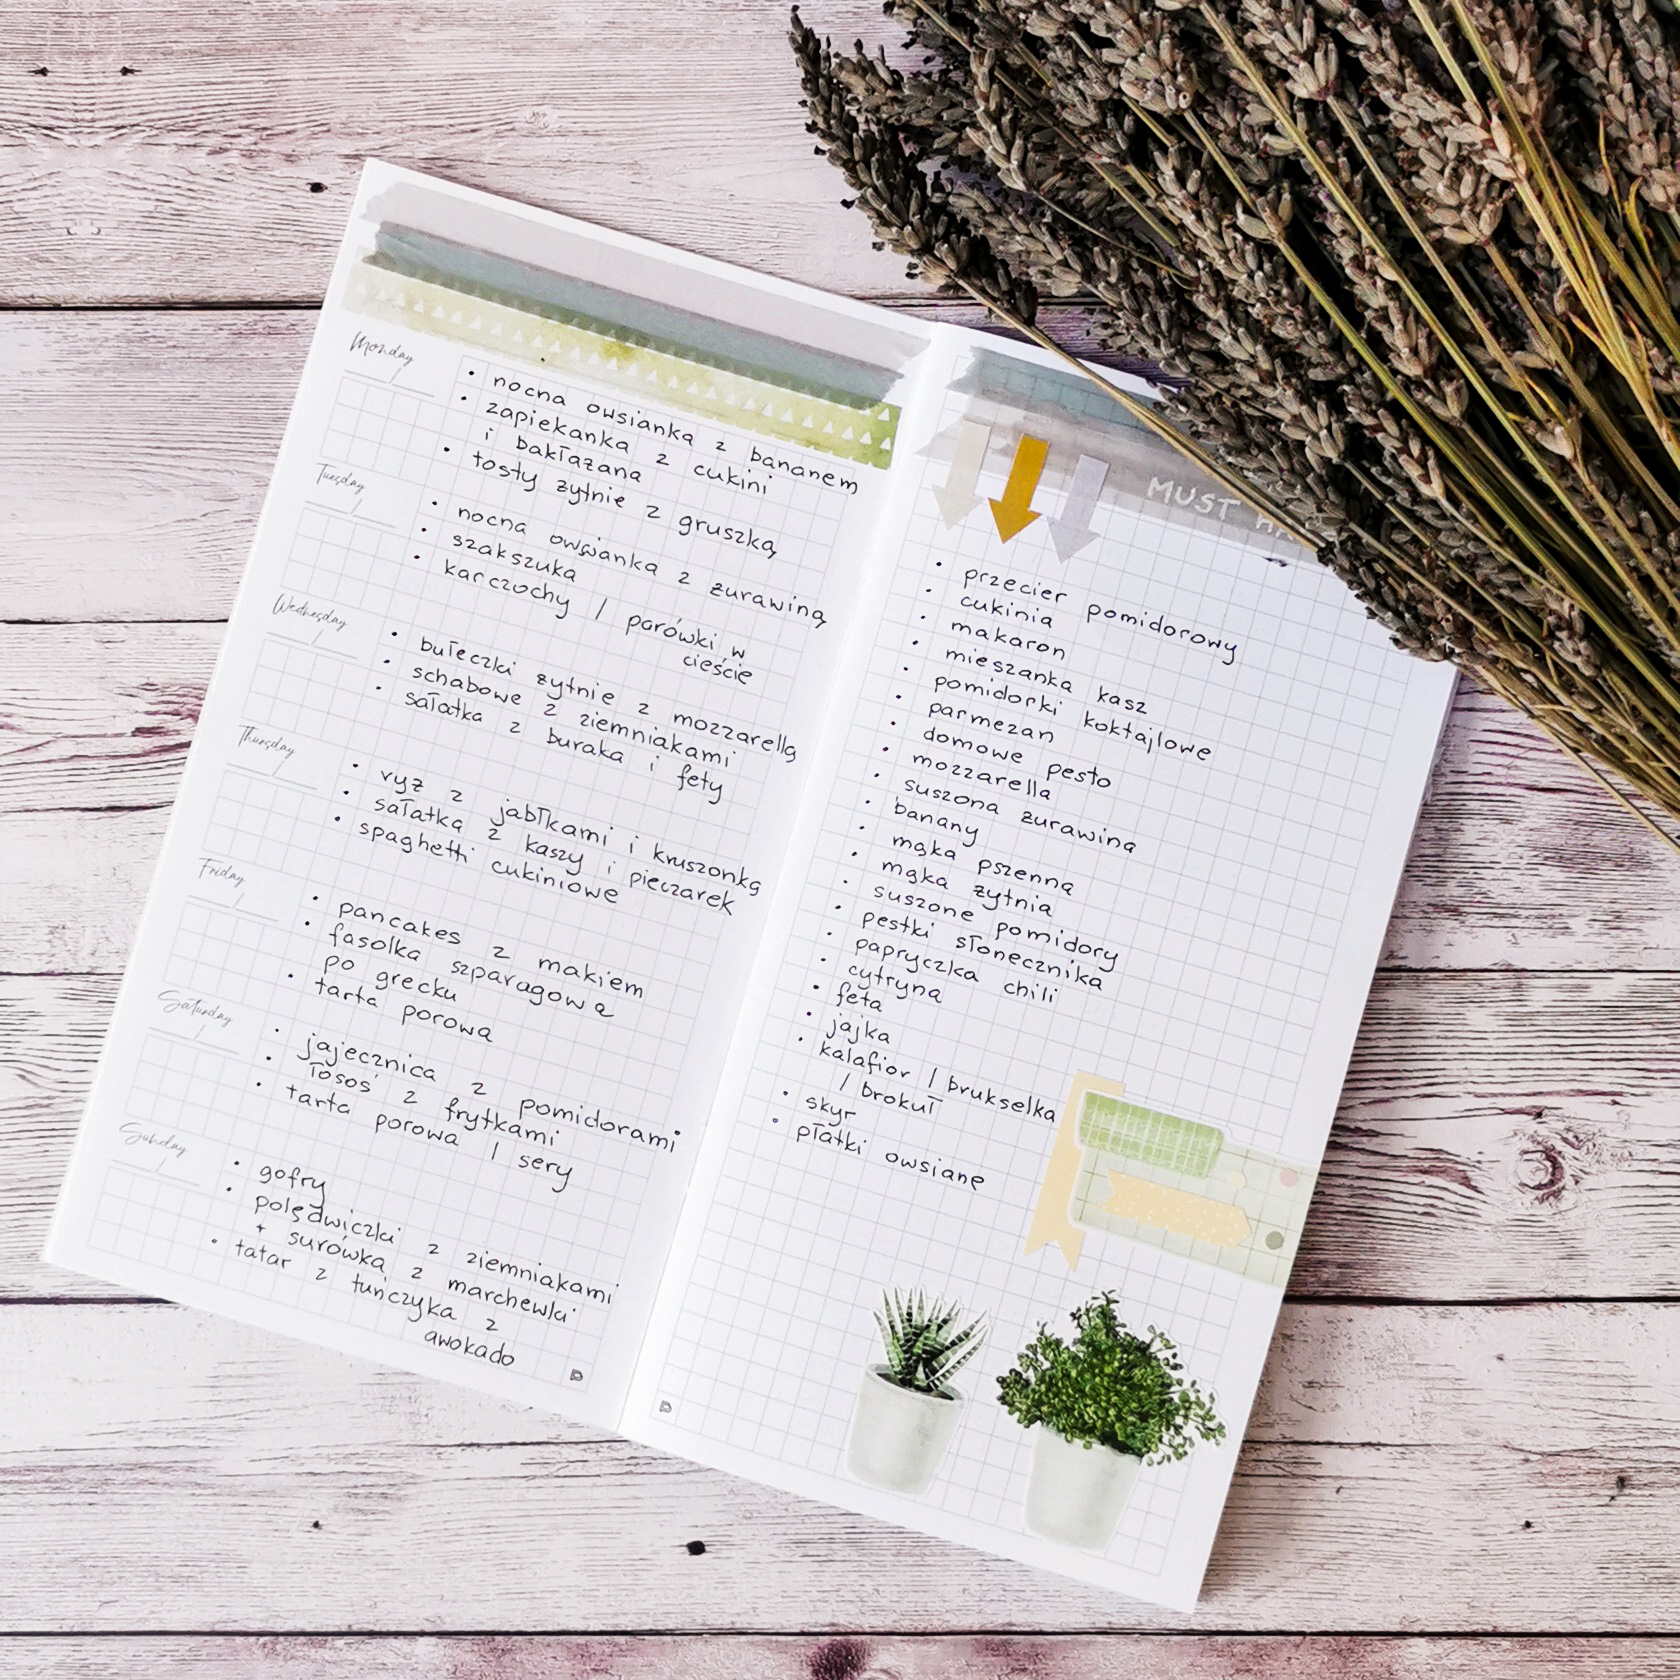 Monday
• nocna owsianka z bananem
• zapiekanka z cukini
i bakłażana
• tosty żytnie z gruszką
Tuesday
• nocna owsianka z żurawiną
• szakszuka
• karczochy / parówki w
cieście
Wednesday
• bułeczki żytnie z mozzarellą
• schabowe z ziemniakami
• sałatka z buraka i fety
Thursday
• ryż z jabłkami i kruszonką
• sałatka z kaszy i pieczarek
• spaghetti cukiniowe
Friday
• pancakes z makiem
• fasolka szparagowa
po grecku
• tarta porowa
Saturday
• jajecznica z pomidorami
• łosoś z frytkami
• tarta porowa / sery
Sunday
• gofry
• polędwiczki z ziemniakami
+ surówka z marchewki
• tatar z tuńczyka z
awokado
MUST
• przecier pomidorowy
• cukinia
• makaron
• mieszanka kasz
• pomidorki koktajlowe
• parmezan
• domowe pesto
• mozzarella
• suszona żurawina
• banany
• mąka pszenna
• mąka żytnia
• suszone pomidory
• pestki słonecznika
• papryczka chili
• cytryna
• feta
• jajka
• kalafior / brukselka
/ brokuł
• skyr
• płatki owsiane